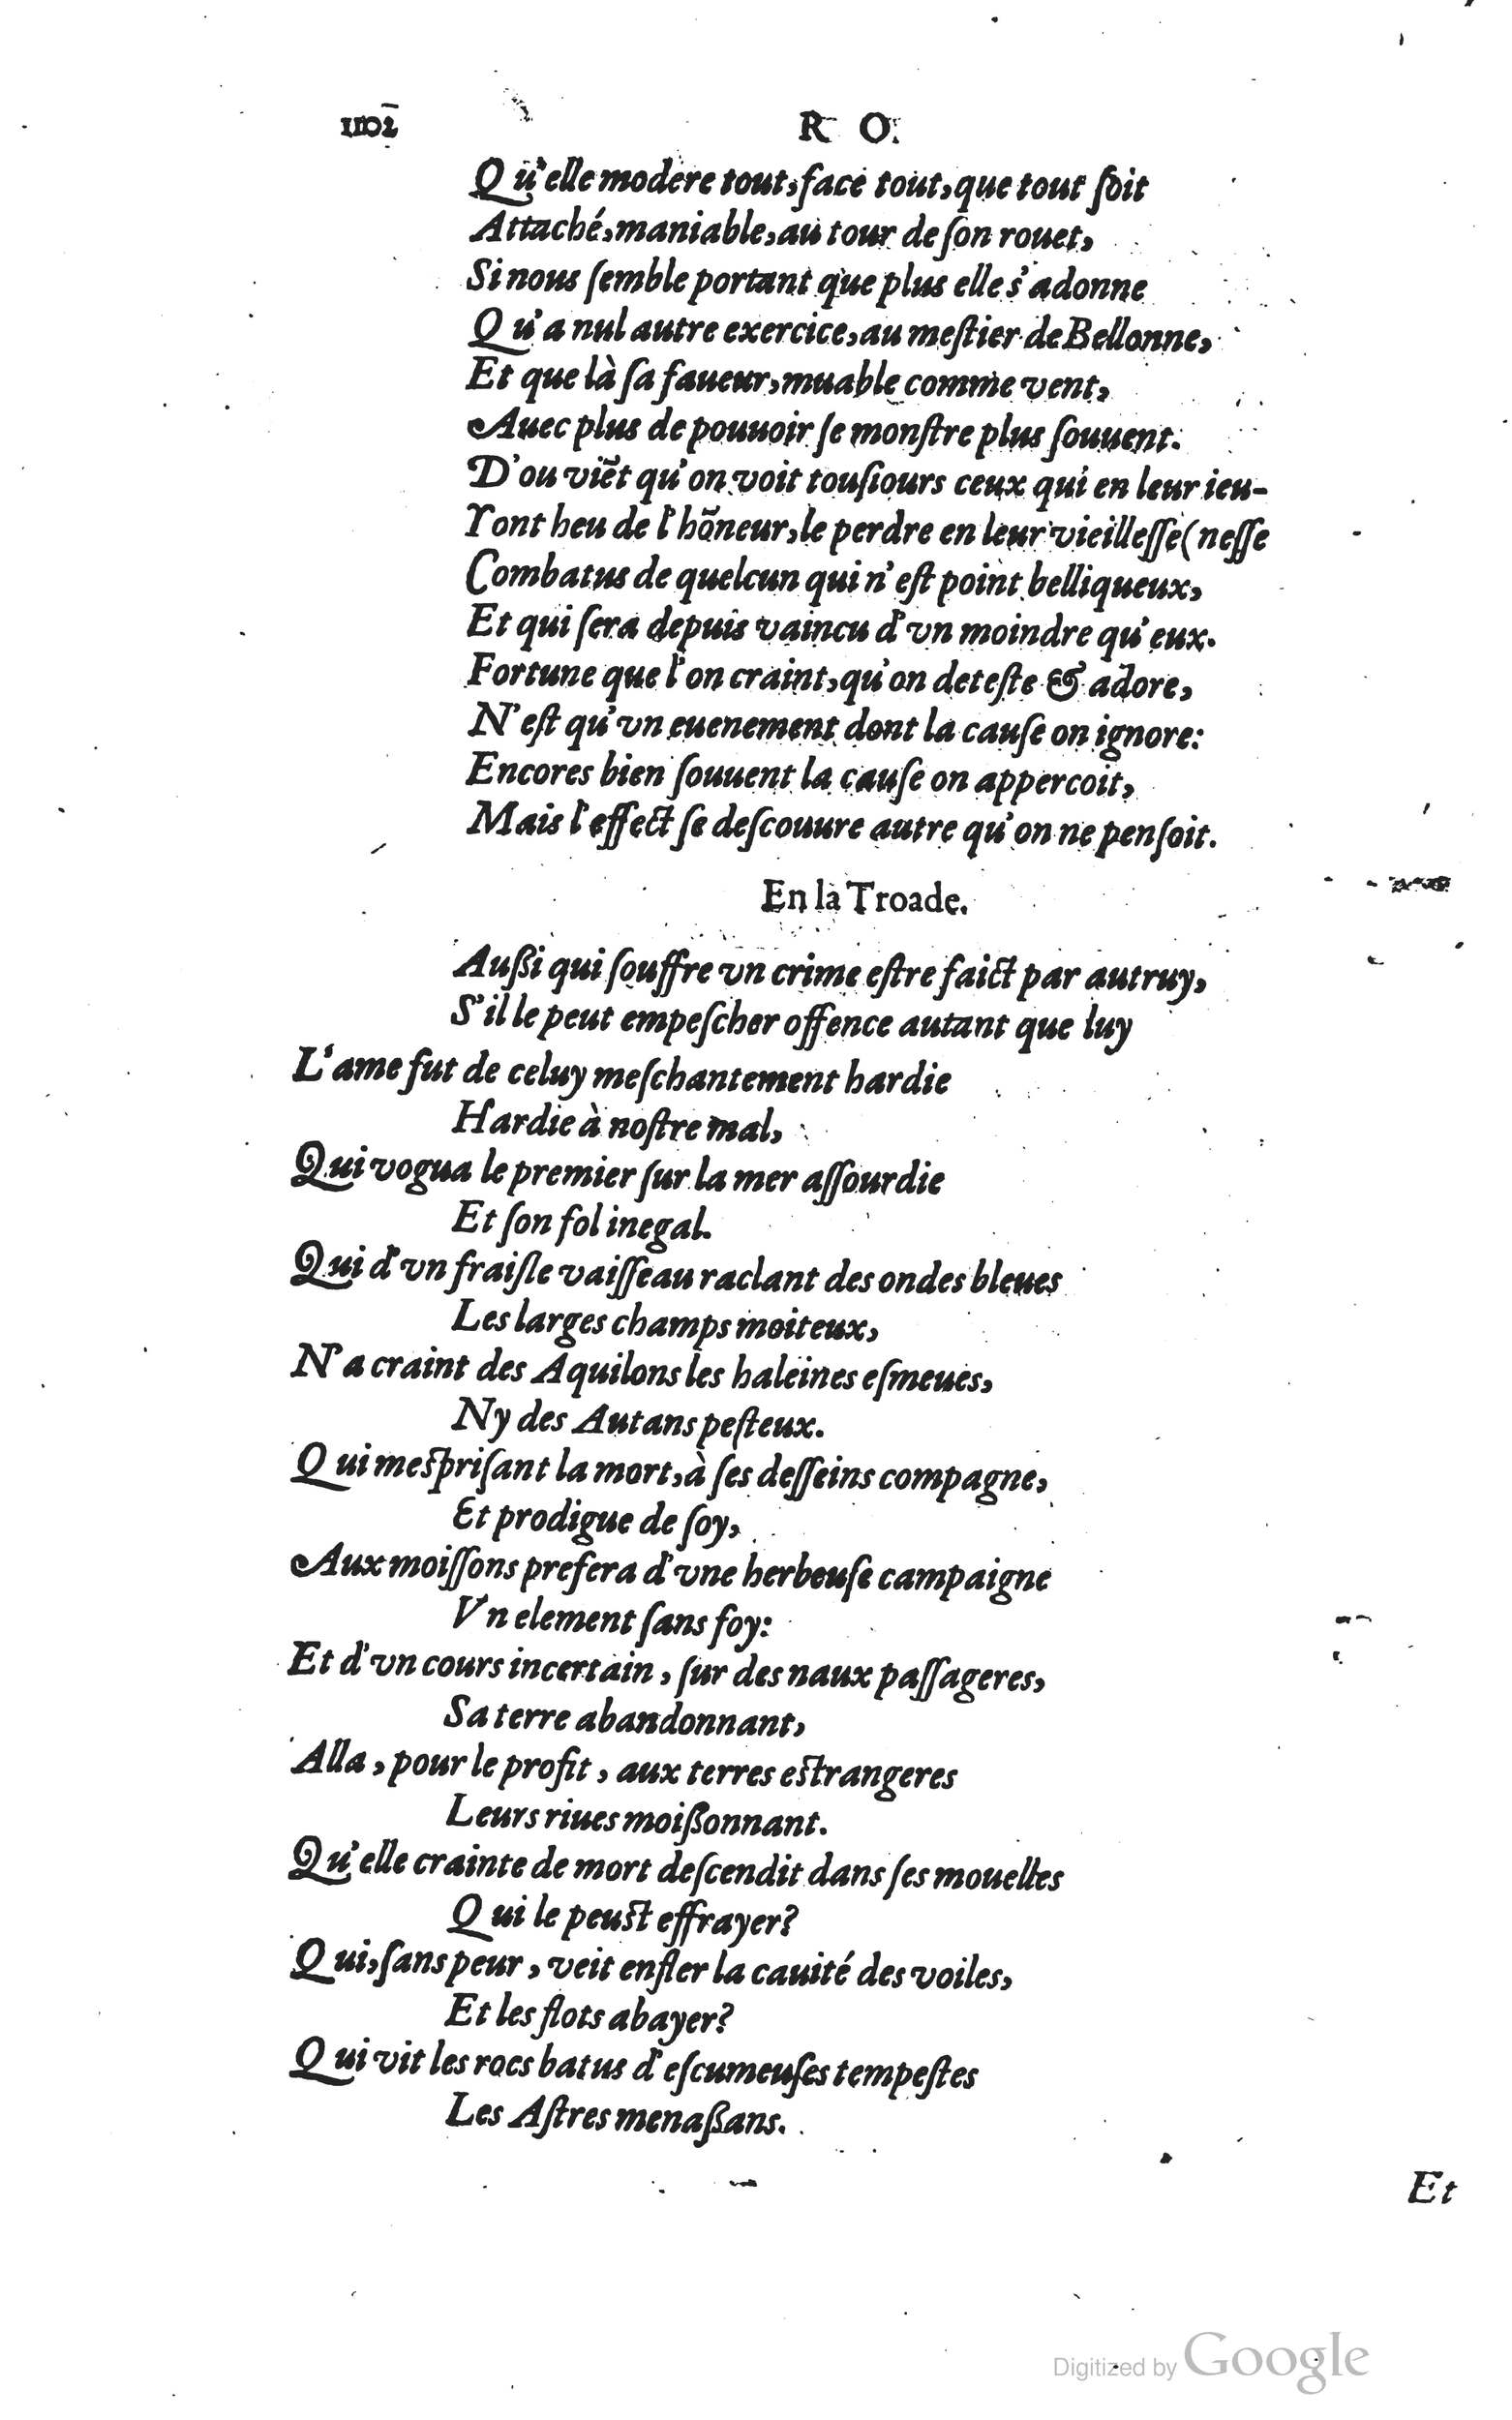 1102 R O.
Qu'elle modere tout, face tout, que tout ſoit
Attaché, maniable, au tour de ſon rouet,
Si nous ſemble portant que plus elle s'adonne
Qu'a nul autre exercice, au meſtier de Bellonne,
Et que là ſa faueur, muable comme vent,
Auec plus de pouuoir ſe monſtre plus ſouuent.
D'ou viẽt qu'on voit touſiours ceux qui en leur ieu-
Yont heu de l'hõneur, le perdre en leur vieilleſſe (neſſe
Combatus de quelcun qui n'eſt point belliqueux,
Et qui ſera depuis vaincu d'vn moindre qu'eux.
Fortune que l'on craint, qu'on deteſte & adore,
N'eſt qu'vn euenement dont la cauſe on ignore:
Encores bien ſouuent la cauſe on appercoit,
Mais l'effect ſe deſcouure autre qu'on ne penſoit.
En la Troade.
Außi qui ſouffre vn crime eſtre faict par autruy,
S'il le peut empeſcher offence autant que luy
L'ame fut de celuy meſchantement hardie
Hardie à noſtre mal,
Qui vogua le premier ſur la mer aſſourdie
Et ſon fol inegal.
Qui d'vn fraiſle vaiſſeau raclant des ondes bleues
Les larges champs moiteux,
N'a craint des Aquilons les haleines eſmeues,
Ny des Autans peſteux.
Qui meſpriſant la mort, à ſes deſſeins compagne,
Et prodigue de ſoy,
Aux moiſſons prefera d'vne herbeuſe campaigne
Vn element ſans foy:
Et d'vn cours incertain, ſur des naux paſſageres,
Sa terre abandonnant,
Alla, pour le profit, aux terres eſtrangeres
Leurs riues moißonnant.
Qu'elle crainte de mort deſcendit dans ſes mouelles
Qui le peuſt effrayer?
Qui, ſans peur, veit enfler la cauité des voiles,
Et les flots abayer?
Qui vit les rocs batus d'eſcumeuſes tempeſtes
Les Aſtres menaßans.
Et
Digitized by Google